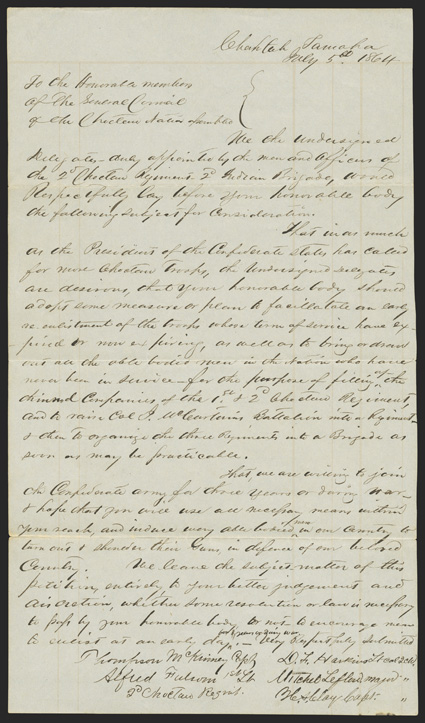 Chahtah Tamaha
July 5th 1864
To the Honorable members
of The General Council
of the Choctaw Nation assembled
We the undersigned
delegates duly appointed by the men and officers of
the 2d Choctaw Regiment 2d Indian Brigade, would
Respectfully lay before your honorable body
the following subject for consideration.
That in as much
as the President of the Confederate States has called
for more Choctaw Troops, the undersigned delegates
are desirous, that your honorable body should
adopt some measure or plan to facilitate an early
re-enlistment of the troops whose term of service have ex-
pired or now expiring, as well as to bring or draw
out all the able bodied men in the Nation who have
never been in service - for the purpose of filling up the
thinned Companies of the 1st & 2d Choctaw Regiment,
and to raise Col J. McCurtains Battalion into a Regiment
& then to organize the three Regiments into a Brigade as
soon as may be practicable.
That we are willing to join
the Confederate army for three years or during war
& hope that you will use all necessary means within
your reach, and induce every able bodied men in our Country to
turn out & shoulder their Guns, in defence of our beloved
Country. We leave the subject matter of this
petition, entirely to your better judgement and
discretion, whether some resolution or law is necessary
to pass by your honorable body, or not to encourage men
to enlist at an early day for 3 years or during war
Very respectfully submitted
Thompson McKinney Capt
Alfred Fulsom 1st Lt
2d Choctaw Regmt.
D. F. Harkins
Mitchel Leflore